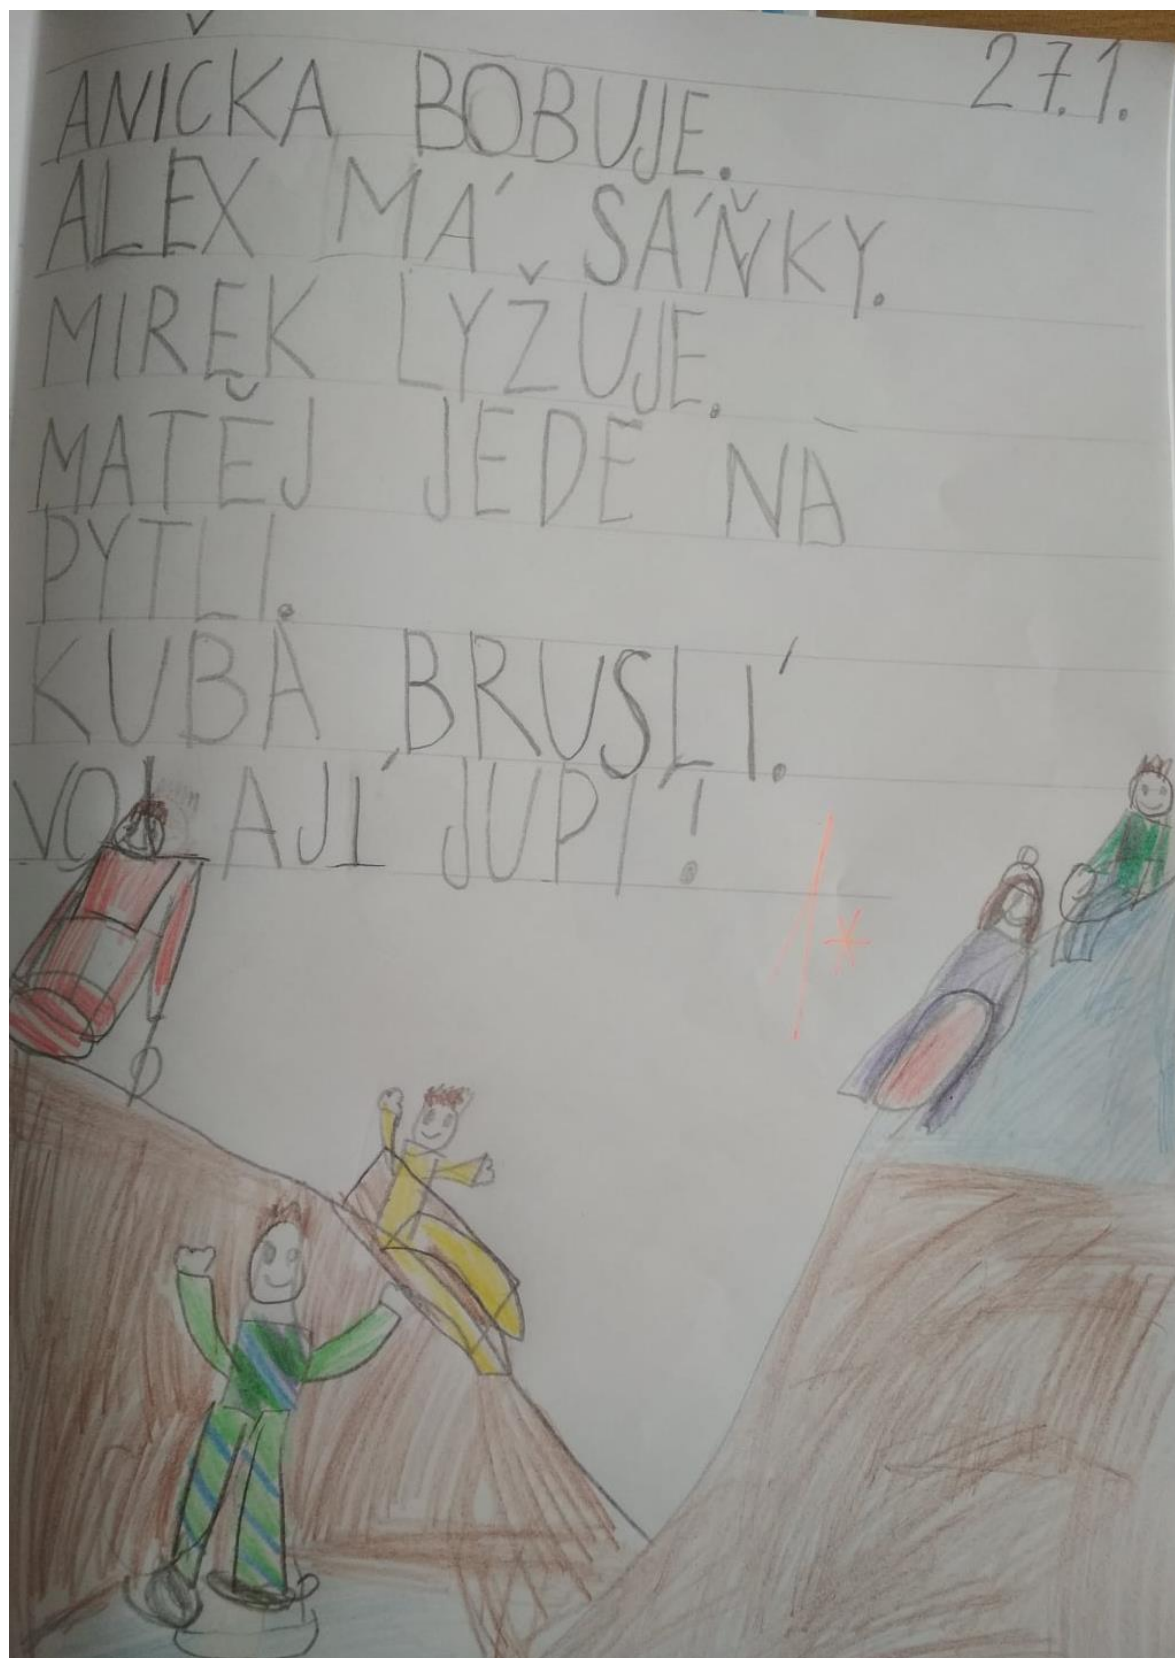 27.1.
ANIČKA BOBUJE.
ALEX MÁ SÁŇKY.
MIREK LYŽUJE.
MATĚJ JEDE NA
PYTLI.
KUBA BRUSLÍ.
VOLAJÍ JUPÍ!
1*